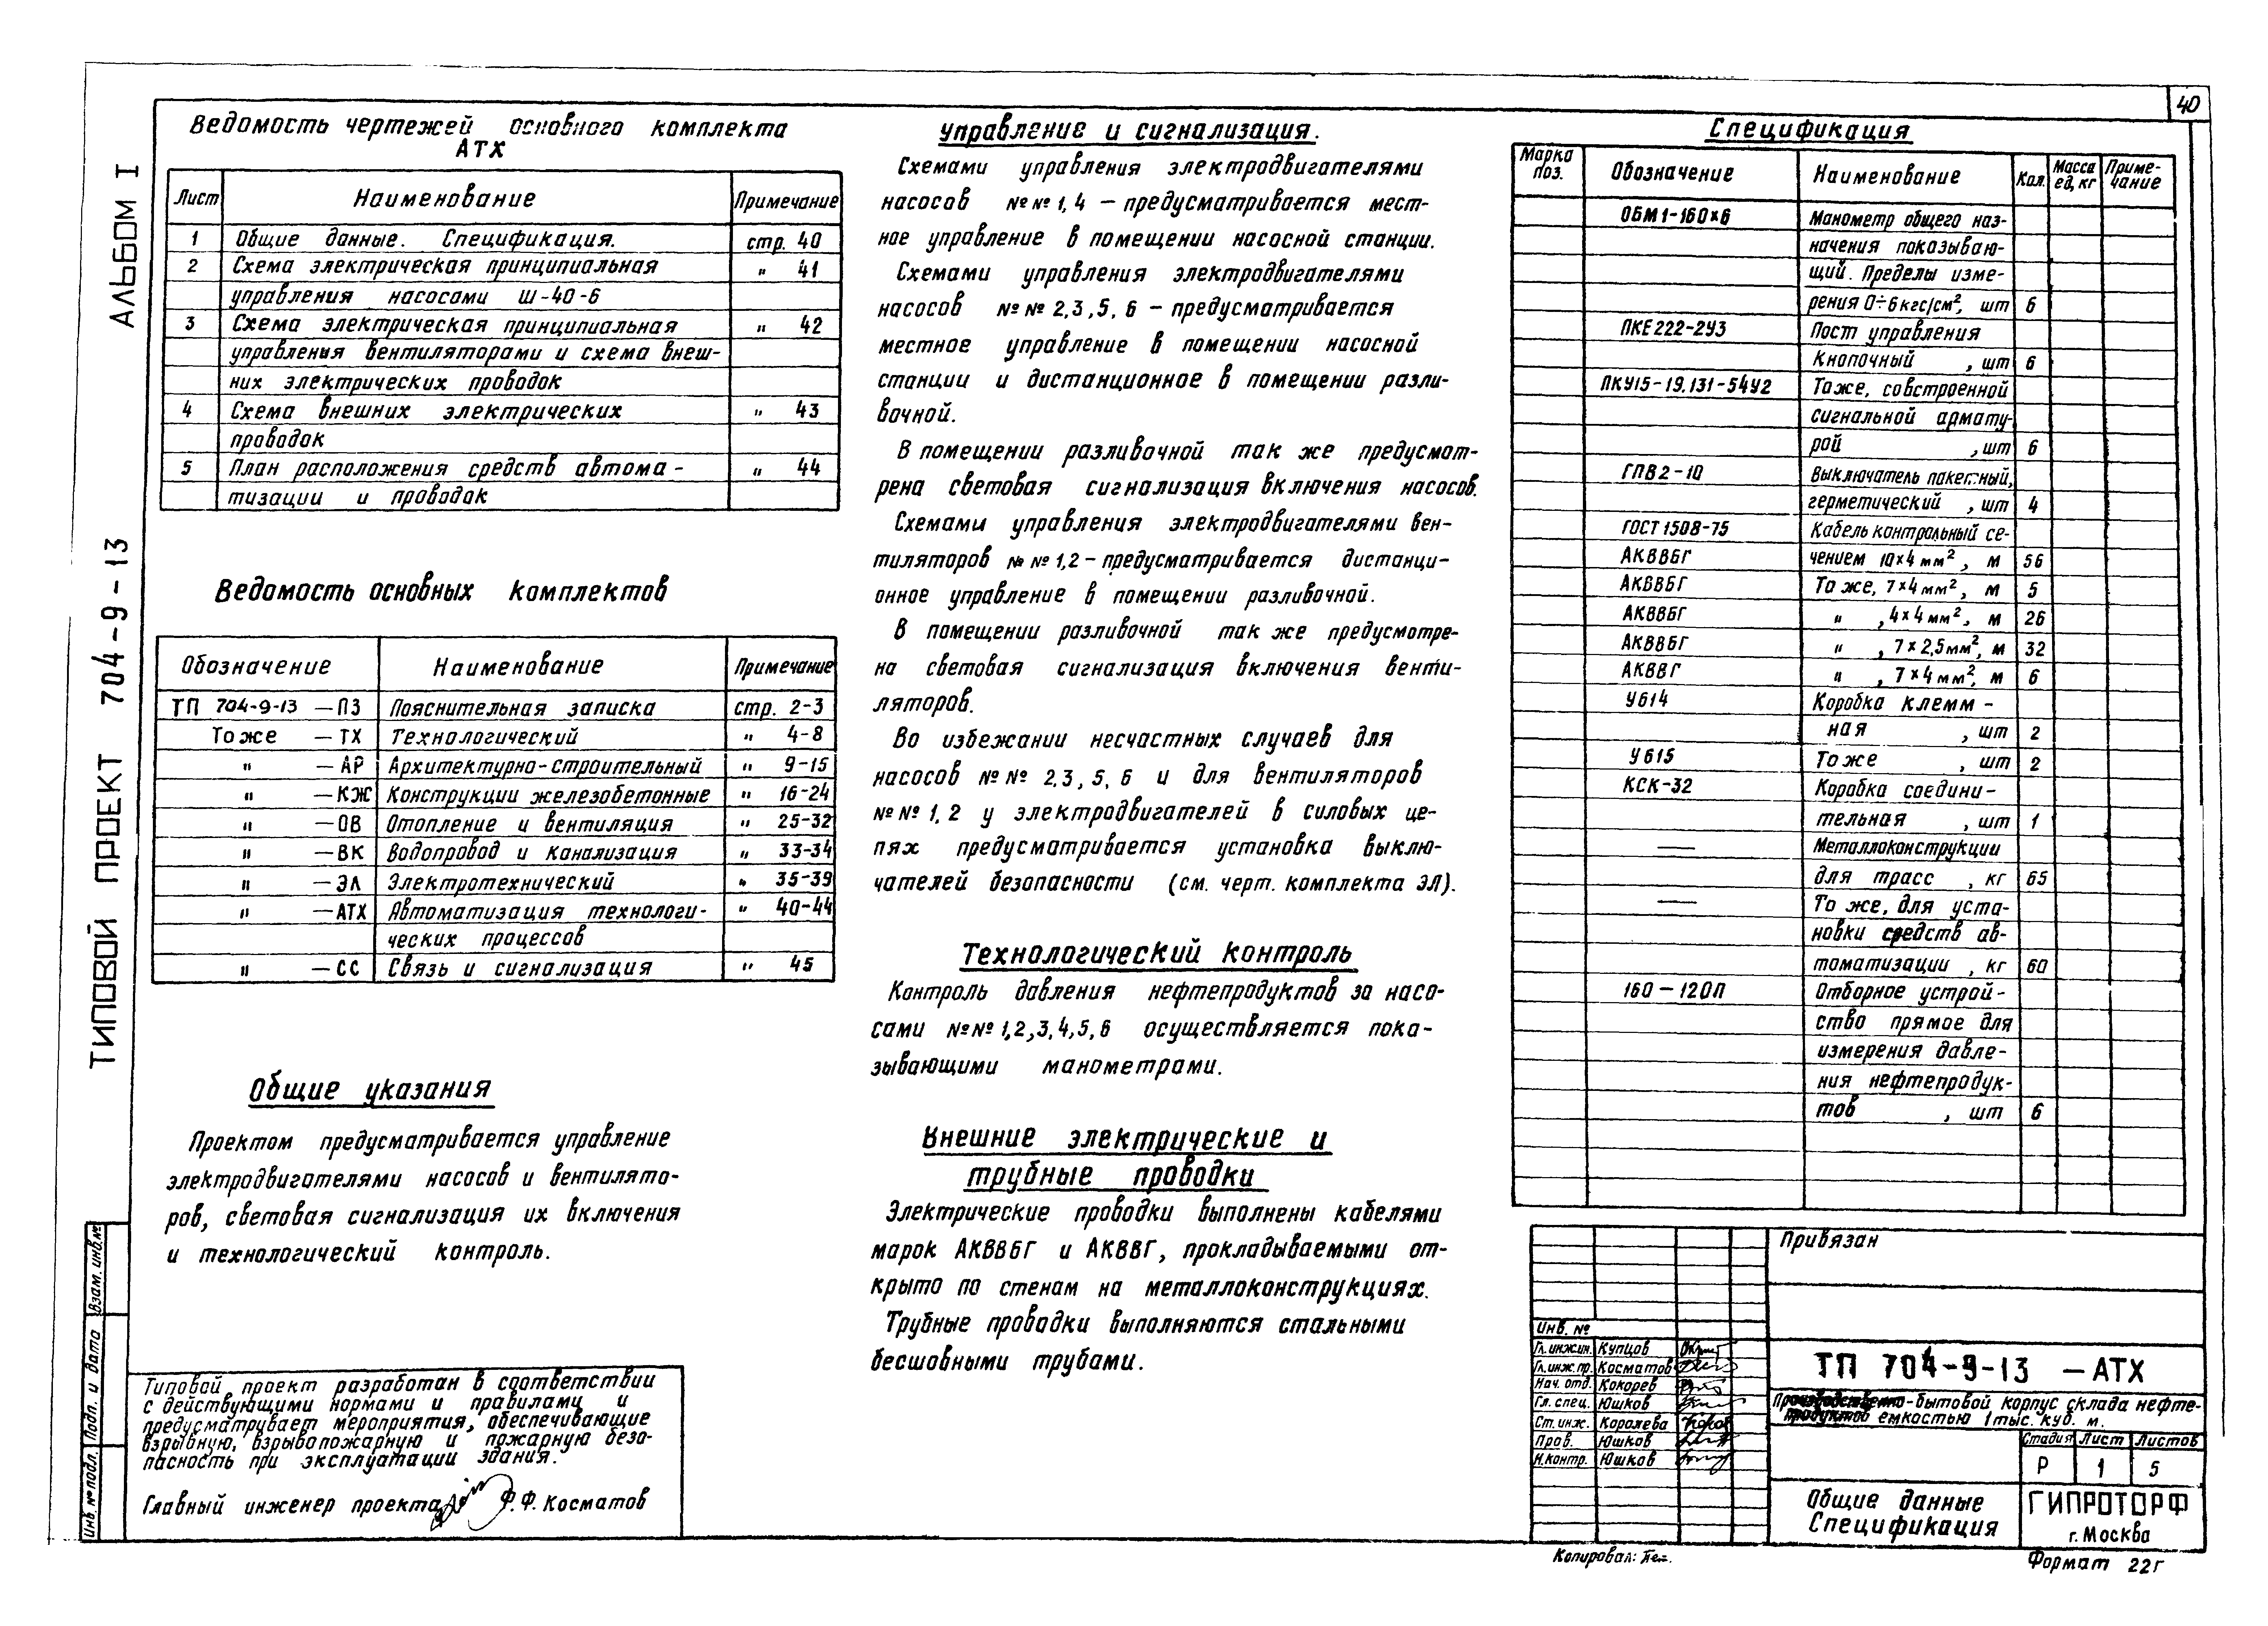 40
АЛЬБОМ I
ТИПОВОЙ ПРОЕКТ 704-9-13
Ведомость чертежей основного комплекта
АТХ
Лист Наименование Примечание
1 Общие данные. Спецификация. стр. 40
2 Схема электрическая принципиальная " 41
управления насосами Ш-40-6
3 Схема электрическая принципиальная " 42
управления вентиляторами и схема внеш-
них электрических проводок
4 Схема внешних электрических " 43
проводок
5 План расположения средств автома- " 44
тизации и проводок
Ведомость основных комплектов
Обозначение Наименование Примечание
ТП 704-9-13 -ПЗ Пояснительная записка стр. 2-3
То же -ТХ Технологический " 4-8
" -АР Архитектурно-строительный " 9-15
" -КЖ Конструкции железобетонные " 16-24
" -ОВ Отопление и вентиляция " 25-32
" -ВК Водопровод и канализация " 33-34
" -ЭЛ Электротехнический " 35-39
" -АТХ Автоматизация технологи- " 40-44
ческих процессов
" -СС Связь и сигнализация " 45
Общие указания
Проектом предусматривается управление
электродвигателями насосов и вентилято-
ров, световая сигнализация их включения
и технологический контроль.
Типовой проект разработан в соответствии
с действующими нормами и правилами и
предусматривает мероприятия, обеспечивающие
взрывную, взрывопожарную и пожарную безо-
пасность при эксплуатации здания.
Главный инженер проекта Ф.Ф. Косматов
Инв. № подл. Подп. и дата Взам. инв. №
Управление и сигнализация.
Схемами управления электродвигателями
насосов №№ 1, 4 - предусматривается мест-
ное управление в помещении насосной станции.
Схемами управления электродвигателями
насосов №№ 2, 3, 5, 6 - предусматривается
местное управление в помещении насосной
станции и дистанционное в помещении разли-
вочной.
В помещении разливочной так же предусмот-
рена световая сигнализация включения насосов.
Схемами управления электродвигателями вен-
тиляторов №№ 1,2 - предусматривается дистанци-
онное управление в помещении разливочной.
В помещении разливочной так же предусмотре-
на световая сигнализация включения венти-
ляторов.
Во избежании несчастных случаев для
насосов №№ 2,3,5,6 и для вентиляторов
№№ 1,2 у электродвигателей в силовых це-
пях предусматривается установка выклю-
чателей безопасности (см. черт. комплекта ЭЛ).
Технологический контроль
Контроль давления нефтепродуктов за насо-
сами №№ 1,2,3,4,5,6 осуществляется пока-
зывающими манометрами.
Внешние электрические и
трубные проводки
Электрические проводки выполнены кабелями
марок АКВВБГ и АКВВГ, прокладываемыми от-
крыто по стенам на металлоконструкциях.
Трубные проводки выполняются стальными
бесшовными трубами.
Спецификация
Марка поз. Обозначение Наименование Кол. Масса ед, кг Приме-чание
ОБМ1-160×6 Манометр общего наз-
начения показываю-
щий. Пределы изме-
рения 0÷6 кгс/см², шт 6
ПКЕ222-2У3 Пост управления
Кнопочный , шт 6
ПКУ15-19.131-54У2 То же, со встроенной
сигнальной армату-
рой , шт 6
ГПВ2-10 Выключатель пакетный,
герметический , шт 4
ГОСТ 1508-75 Кабель контрольный се-
АКВВБГ чением 10×4 мм², м 56
АКВВБГ То же, 7×4 мм², м 5
АКВВБГ " , 4×4 мм², м 26
АКВВБГ " , 7×2,5 мм², м 32
АКВВГ " , 7×4 мм², м 6
У614 Коробка клемм-
ная , шт 2
У615 То же , шт 2
КСК-32 Коробка соедини-
тельная , шт 1
— Металлоконструкции
для трасс , кг 65
— То же, для уста-
новки средств ав-
томатизации , кг 60
160-120П Отборное устрой-
ство прямое для
измерения давле-
ния нефтепродук-
тов , шт 6
Привязан
Инв. №
Гл. инж.ин. Купцов
Гл. инж. пр. Косматов
Нач. отд. Кокорев
Гл. спец. Юшков
Ст. инж. Королева
Пров. Юшков
Н.контр. Юшков
ТП 704-9-13 -АТХ
Производственно-бытовой корпус склада нефте-
продуктов емкостью 1 тыс. куб. м.
Стадия Лист Листов
Р 1 5
Общие данные
Спецификация
ГИПРОТОРФ
г. Москва
Копировал:
Формат 22г